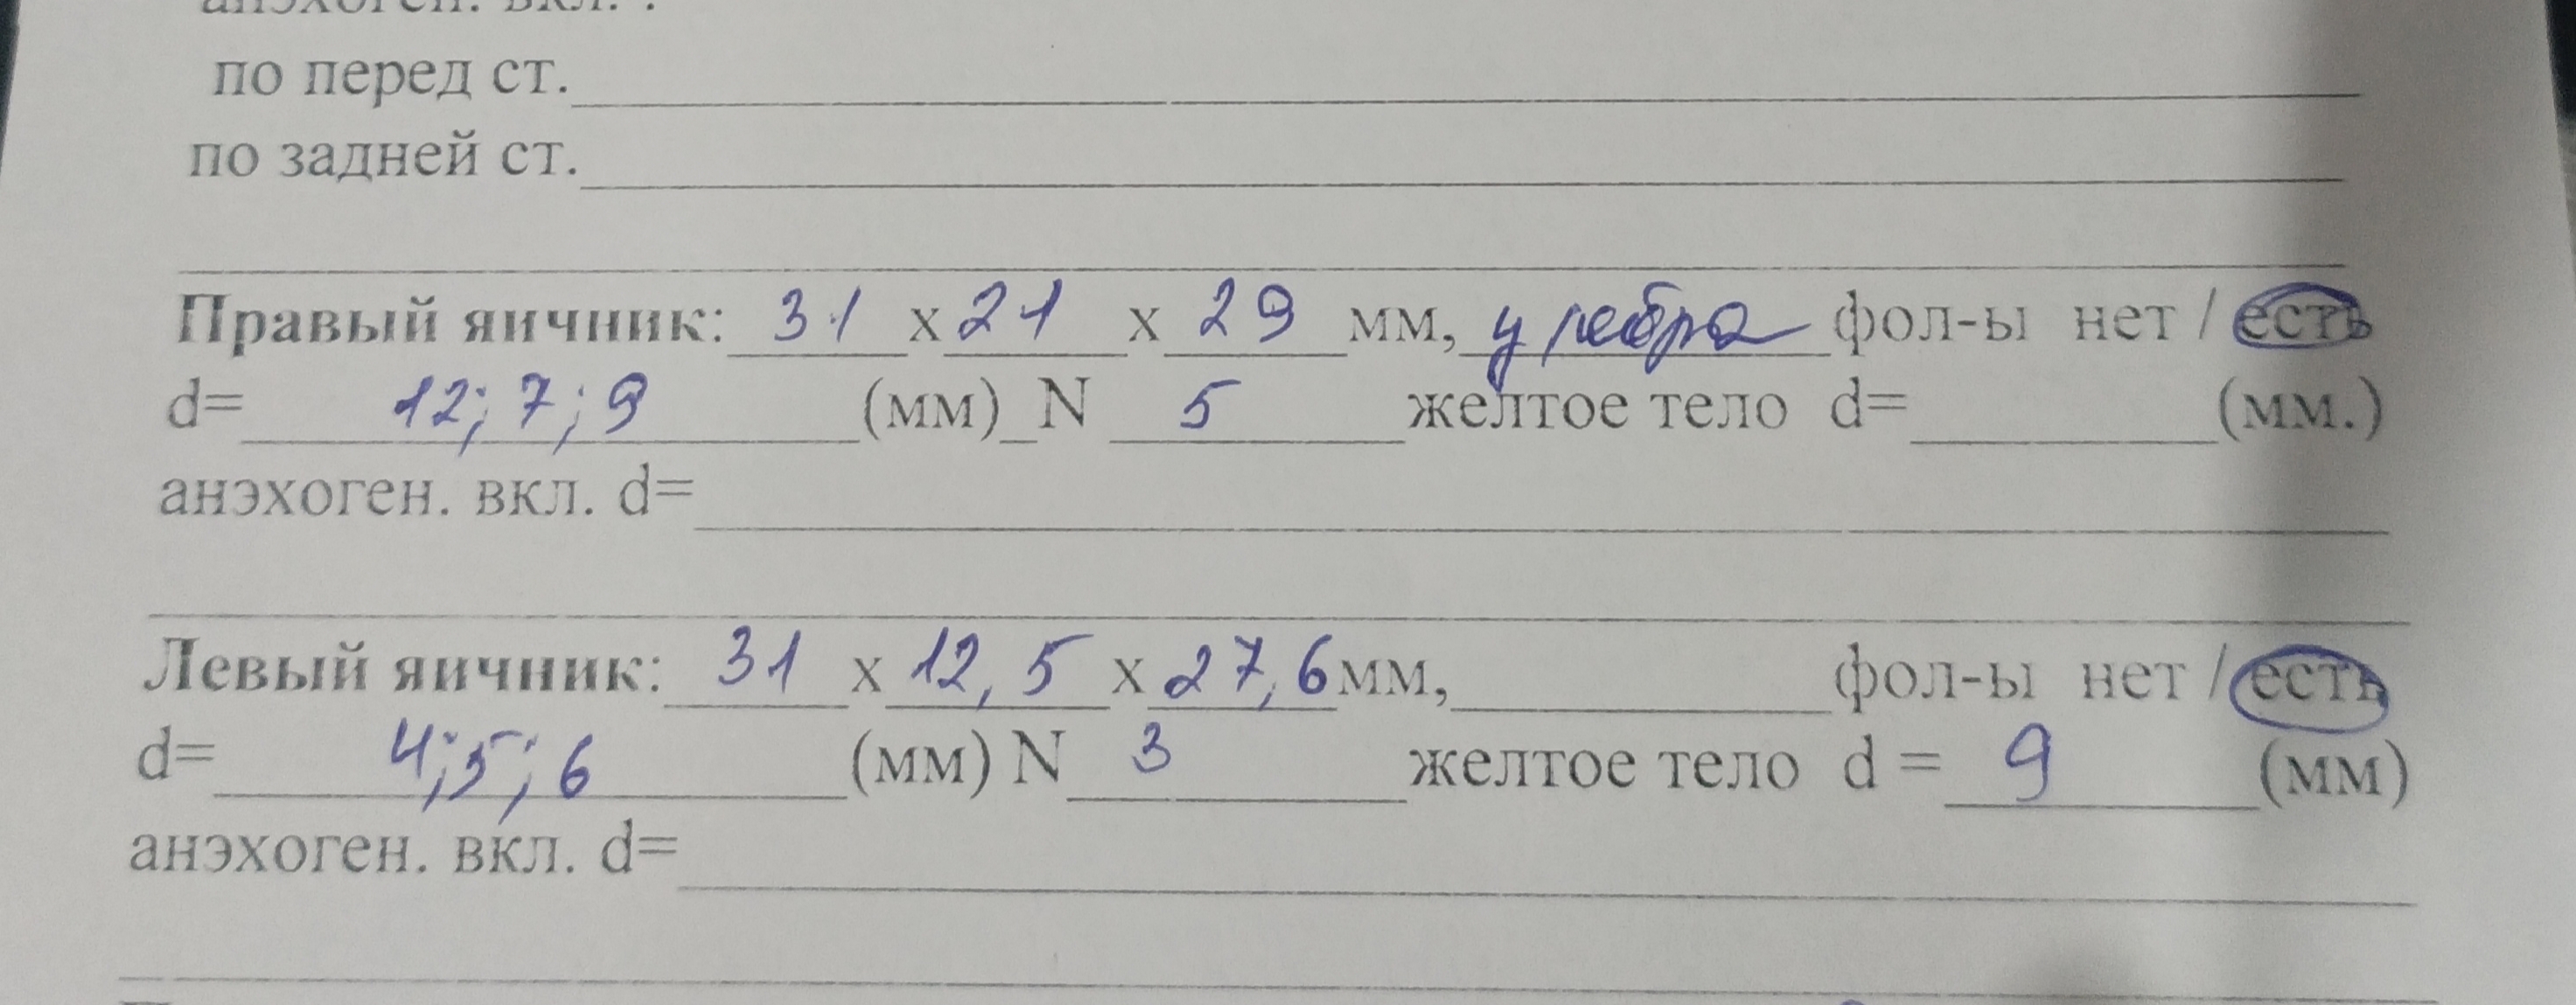 анэхоген. вкл. :
по перед ст.
по задней ст.
Правый яичник: 31 х 21 х 29 мм, у ребра фол-ы нет / есть
d= 12; 7; 9 (мм)_N 5 желтое тело d= (мм.)
анэхоген. вкл. d=
Левый яичник: 31 х 12,5 х 27,6 мм, фол-ы нет / есть
d= 4; 5; 6 (мм) N 3 желтое тело d = 9 (мм)
анэхоген. вкл. d=